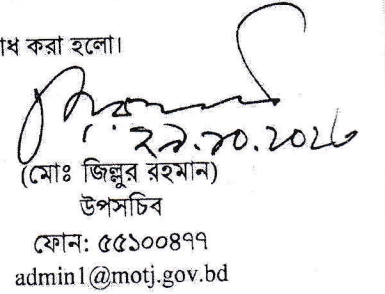 ধ করা হলো।
(মোঃ জিল্লুর রহমান)
উপসচিব
ফোন: ৫৫১০০৪৭৭
admin1@motj.gov.bd